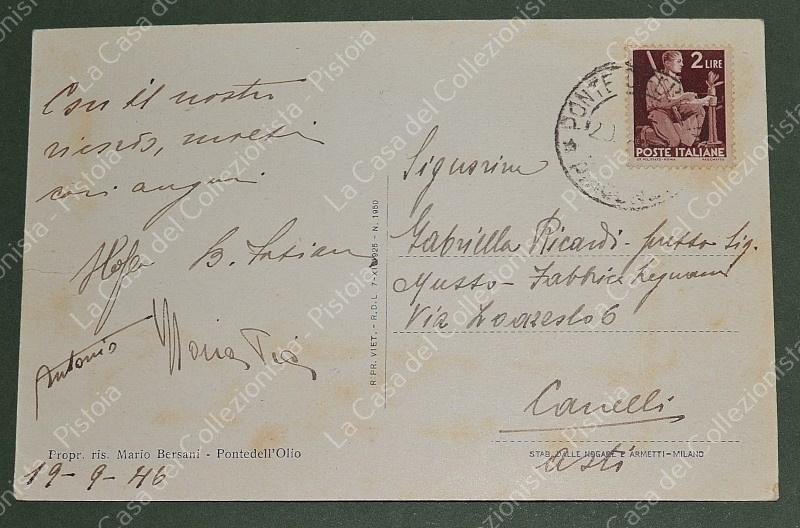 Con il nostro
ricordo, molti
cari auguri
B. Fabian
Antonio Maria Pia
Propr. ris. Mario Bersani - Pontedell'Olio
19-9-46
R. PR. VIET. - R. D. L. 7-XI-1925 - N. 1950
2 LIRE
POSTE ITALIANE
PONTE
Signorina
Gabriella Ricardi - presso Sig.
Musso - Fabbrica Legnami
Via
Canelli
Asti
STAB. DALLE NOGARE E ARMETTI - MILANO
La Casa del Collezionista - Pistoia